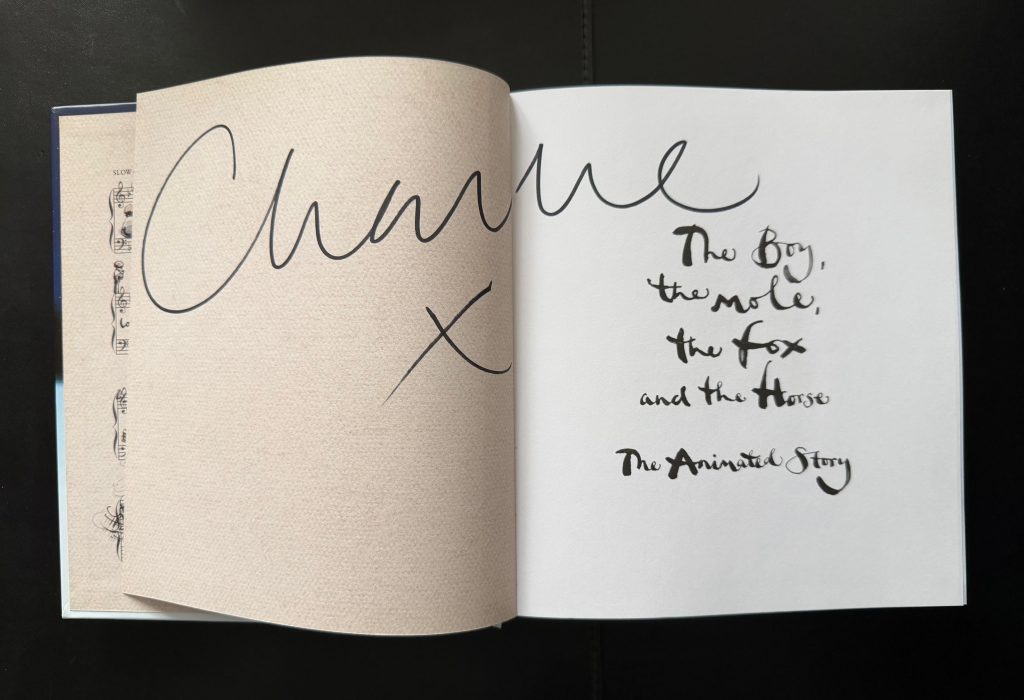 SLOW
Charlie
x
The Boy,
the mole,
the fox
and the Horse
The Animated Story